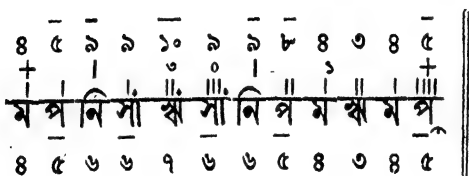 ৪ ৫ ৯ ৯ ১০ ৯ ৯ ৮ ৪ ৩ ৪ ৫
+ । ৩ ০ । ১ +
ম প নি সাঁ ঋাঁ সাঁ নি প ম ঋ ম প
৪ ৫ ৬ ৬ ৭ ৬ ৬ ৫ ৪ ৩ ৪ ৫